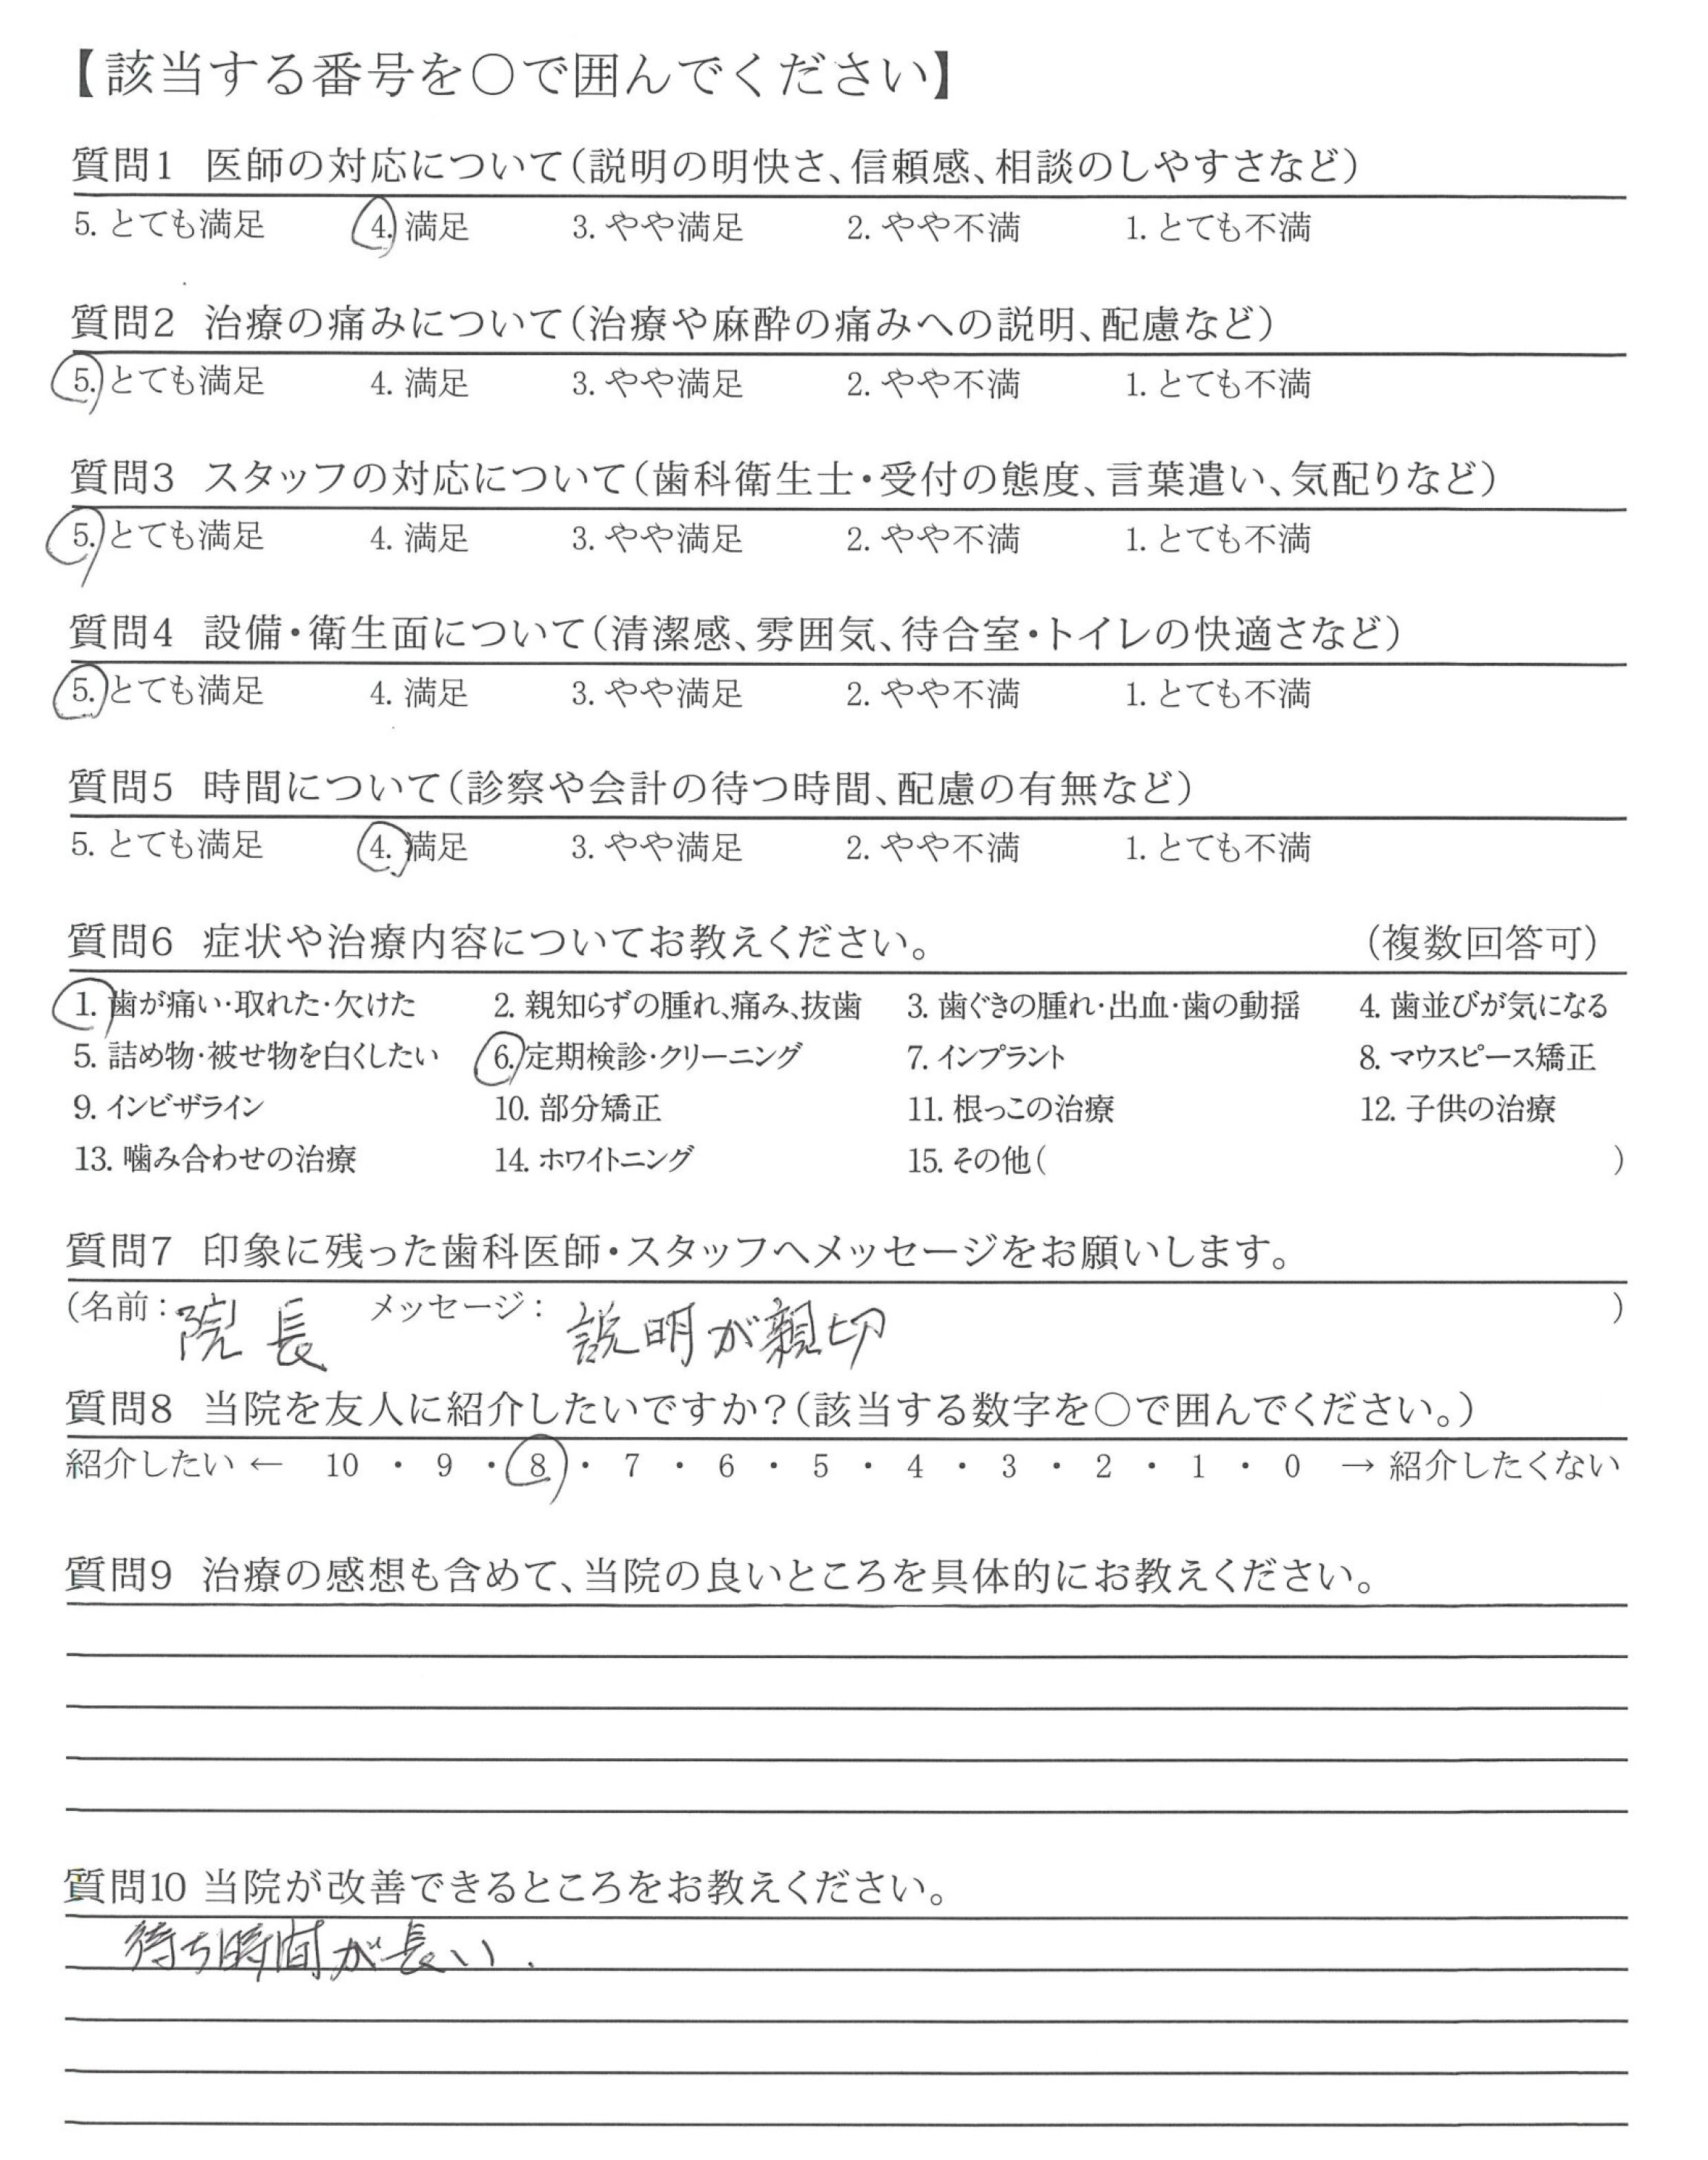 【該当する番号を〇で囲んでください】
質問1 医師の対応について(説明の明快さ、信頼感、相談のしやすさなど)
5. とても満足 4. 満足 3. やや満足 2. やや不満 1. とても不満
質問2 治療の痛みについて(治療や麻酔の痛みへの説明、配慮など)
5. とても満足 4. 満足 3. やや満足 2. やや不満 1. とても不満
質問3 スタッフの対応について(歯科衛生士・受付の態度、言葉遣い、気配りなど)
5. とても満足 4. 満足 3. やや満足 2. やや不満 1. とても不満
質問4 設備・衛生面について(清潔感、雰囲気、待合室・トイレの快適さなど)
5. とても満足 4. 満足 3. やや満足 2. やや不満 1. とても不満
質問5 時間について(診察や会計の待つ時間、配慮の有無など)
5. とても満足 4. 満足 3. やや満足 2. やや不満 1. とても不満
質問6 症状や治療内容についてお教えください。 (複数回答可)
1. 歯が痛い・取れた・欠けた 2. 親知らずの腫れ、痛み、抜歯 3. 歯ぐきの腫れ・出血・歯の動揺 4. 歯並びが気になる
5. 詰め物・被せ物を白くしたい 6. 定期検診・クリーニング 7. インプラント 8. マウスピース矯正
9. インビザライン 10. 部分矯正 11. 根っこの治療 12. 子供の治療
13. 噛み合わせの治療 14. ホワイトニング 15. その他( )
質問7 印象に残った歯科医師・スタッフへメッセージをお願いします。
(名前: 院長 メッセージ: 説明が親切 )
質問8 当院を友人に紹介したいですか?(該当する数字を〇で囲んでください。)
紹介したい ← 10 ・ 9 ・ 8 ・ 7 ・ 6 ・ 5 ・ 4 ・ 3 ・ 2 ・ 1 ・ 0 → 紹介したくない
質問9 治療の感想も含めて、当院の良いところを具体的にお教えください。
質問10 当院が改善できるところをお教えください。
待ち時間が長い.